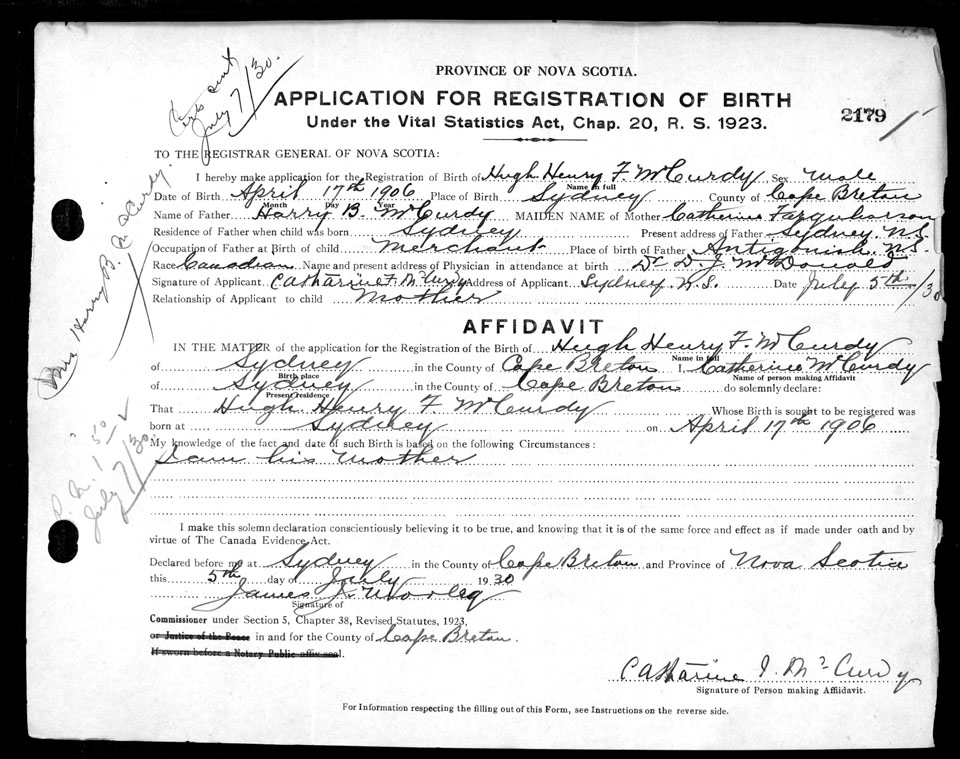 PROVINCE OF NOVA SCOTIA.
APPLICATION FOR REGISTRATION OF BIRTH
2179
Under the Vital Statistics Act, Chap. 20, R. S. 1923.
TO THE REGISTRAR GENERAL OF NOVA SCOTIA:
I hereby make application for the Registration of Birth of Hugh Henry F. McCurdy Sex Male
Name in full
Date of Birth April 17th 1906 Place of Birth Sydney County of Cape Breton
Month Day Year
Name of Father Harry B. McCurdy MAIDEN NAME of Mother Catherine Farquharson
Residence of Father when child was born Sydney Present address of Father Sydney. N.S.
Occupation of Father at Birth of child Merchant Place of birth of Father Antigonish. N.S.
Race Canadian Name and present address of Physician in attendance at birth Dr D. J. McDonald
Signature of Applicant Catharine F. McCurdy Address of Applicant Sydney N.S. Date July 5th/30
Relationship of Applicant to child Mother
AFFIDAVIT
IN THE MATTER of the application for the Registration of the Birth of Hugh Henry F. McCurdy
Name in full
of Sydney in the County of Cape Breton I, Catherine McCurdy
Birth place Name of person making Affidavit
of Sydney in the County of Cape Breton do solemnly declare:
Present residence
That Hugh Henry F. McCurdy Whose Birth is sought to be registered was
born at Sydney on April 17th 1906
My knowledge of the fact and date of such Birth is based on the following Circumstances:
I am his Mother
I make this solemn declaration conscientiously believing it to be true, and knowing that it is of the same force and effect as if made under oath and by
virtue of The Canada Evidence Act.
Declared before me at Sydney in the County of Cape Breton and Province of Nova Scotia
this 5th day of July 1930
James J.
Signature of
Commissioner under Section 5, Chapter 38, Revised Statutes, 1923,
or Justice of the Peace in and for the County of Cape Breton.
If sworn before a Notary Public affix seal.
Catharine McCurdy
Signature of Person making Affidavit.
For Information respecting the filling out of this Form, see Instructions on the reverse side.
sent
July 7/30.
Mrs Harry B. McCurdy.
1 50
July 7/30